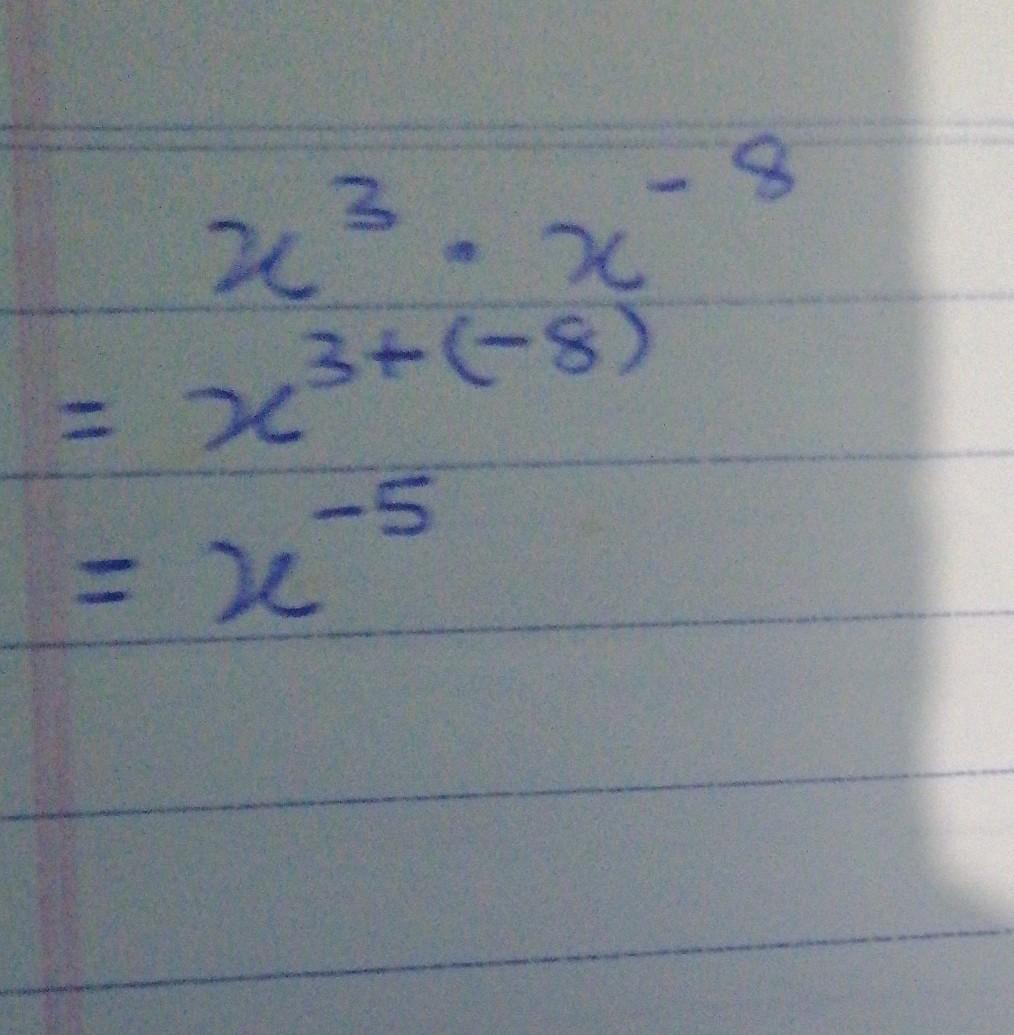 x³ · x⁻⁸
= x³⁺⁽⁻⁸⁾
= x⁻⁵